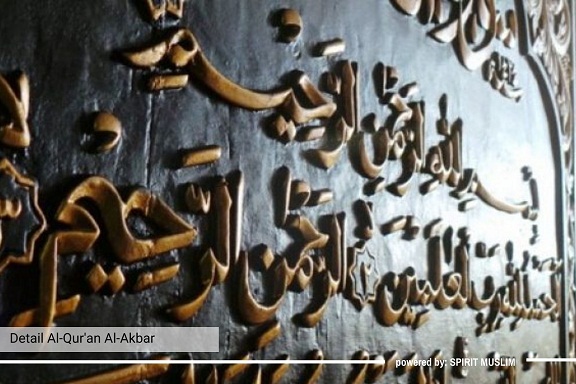 بسم الله الرحمن الرحيم
الحمد لله رب العلمين الرحمن الرحيم
Detail Al-Qur'an Al-Akbar
powered by: SPIRIT MUSLIM